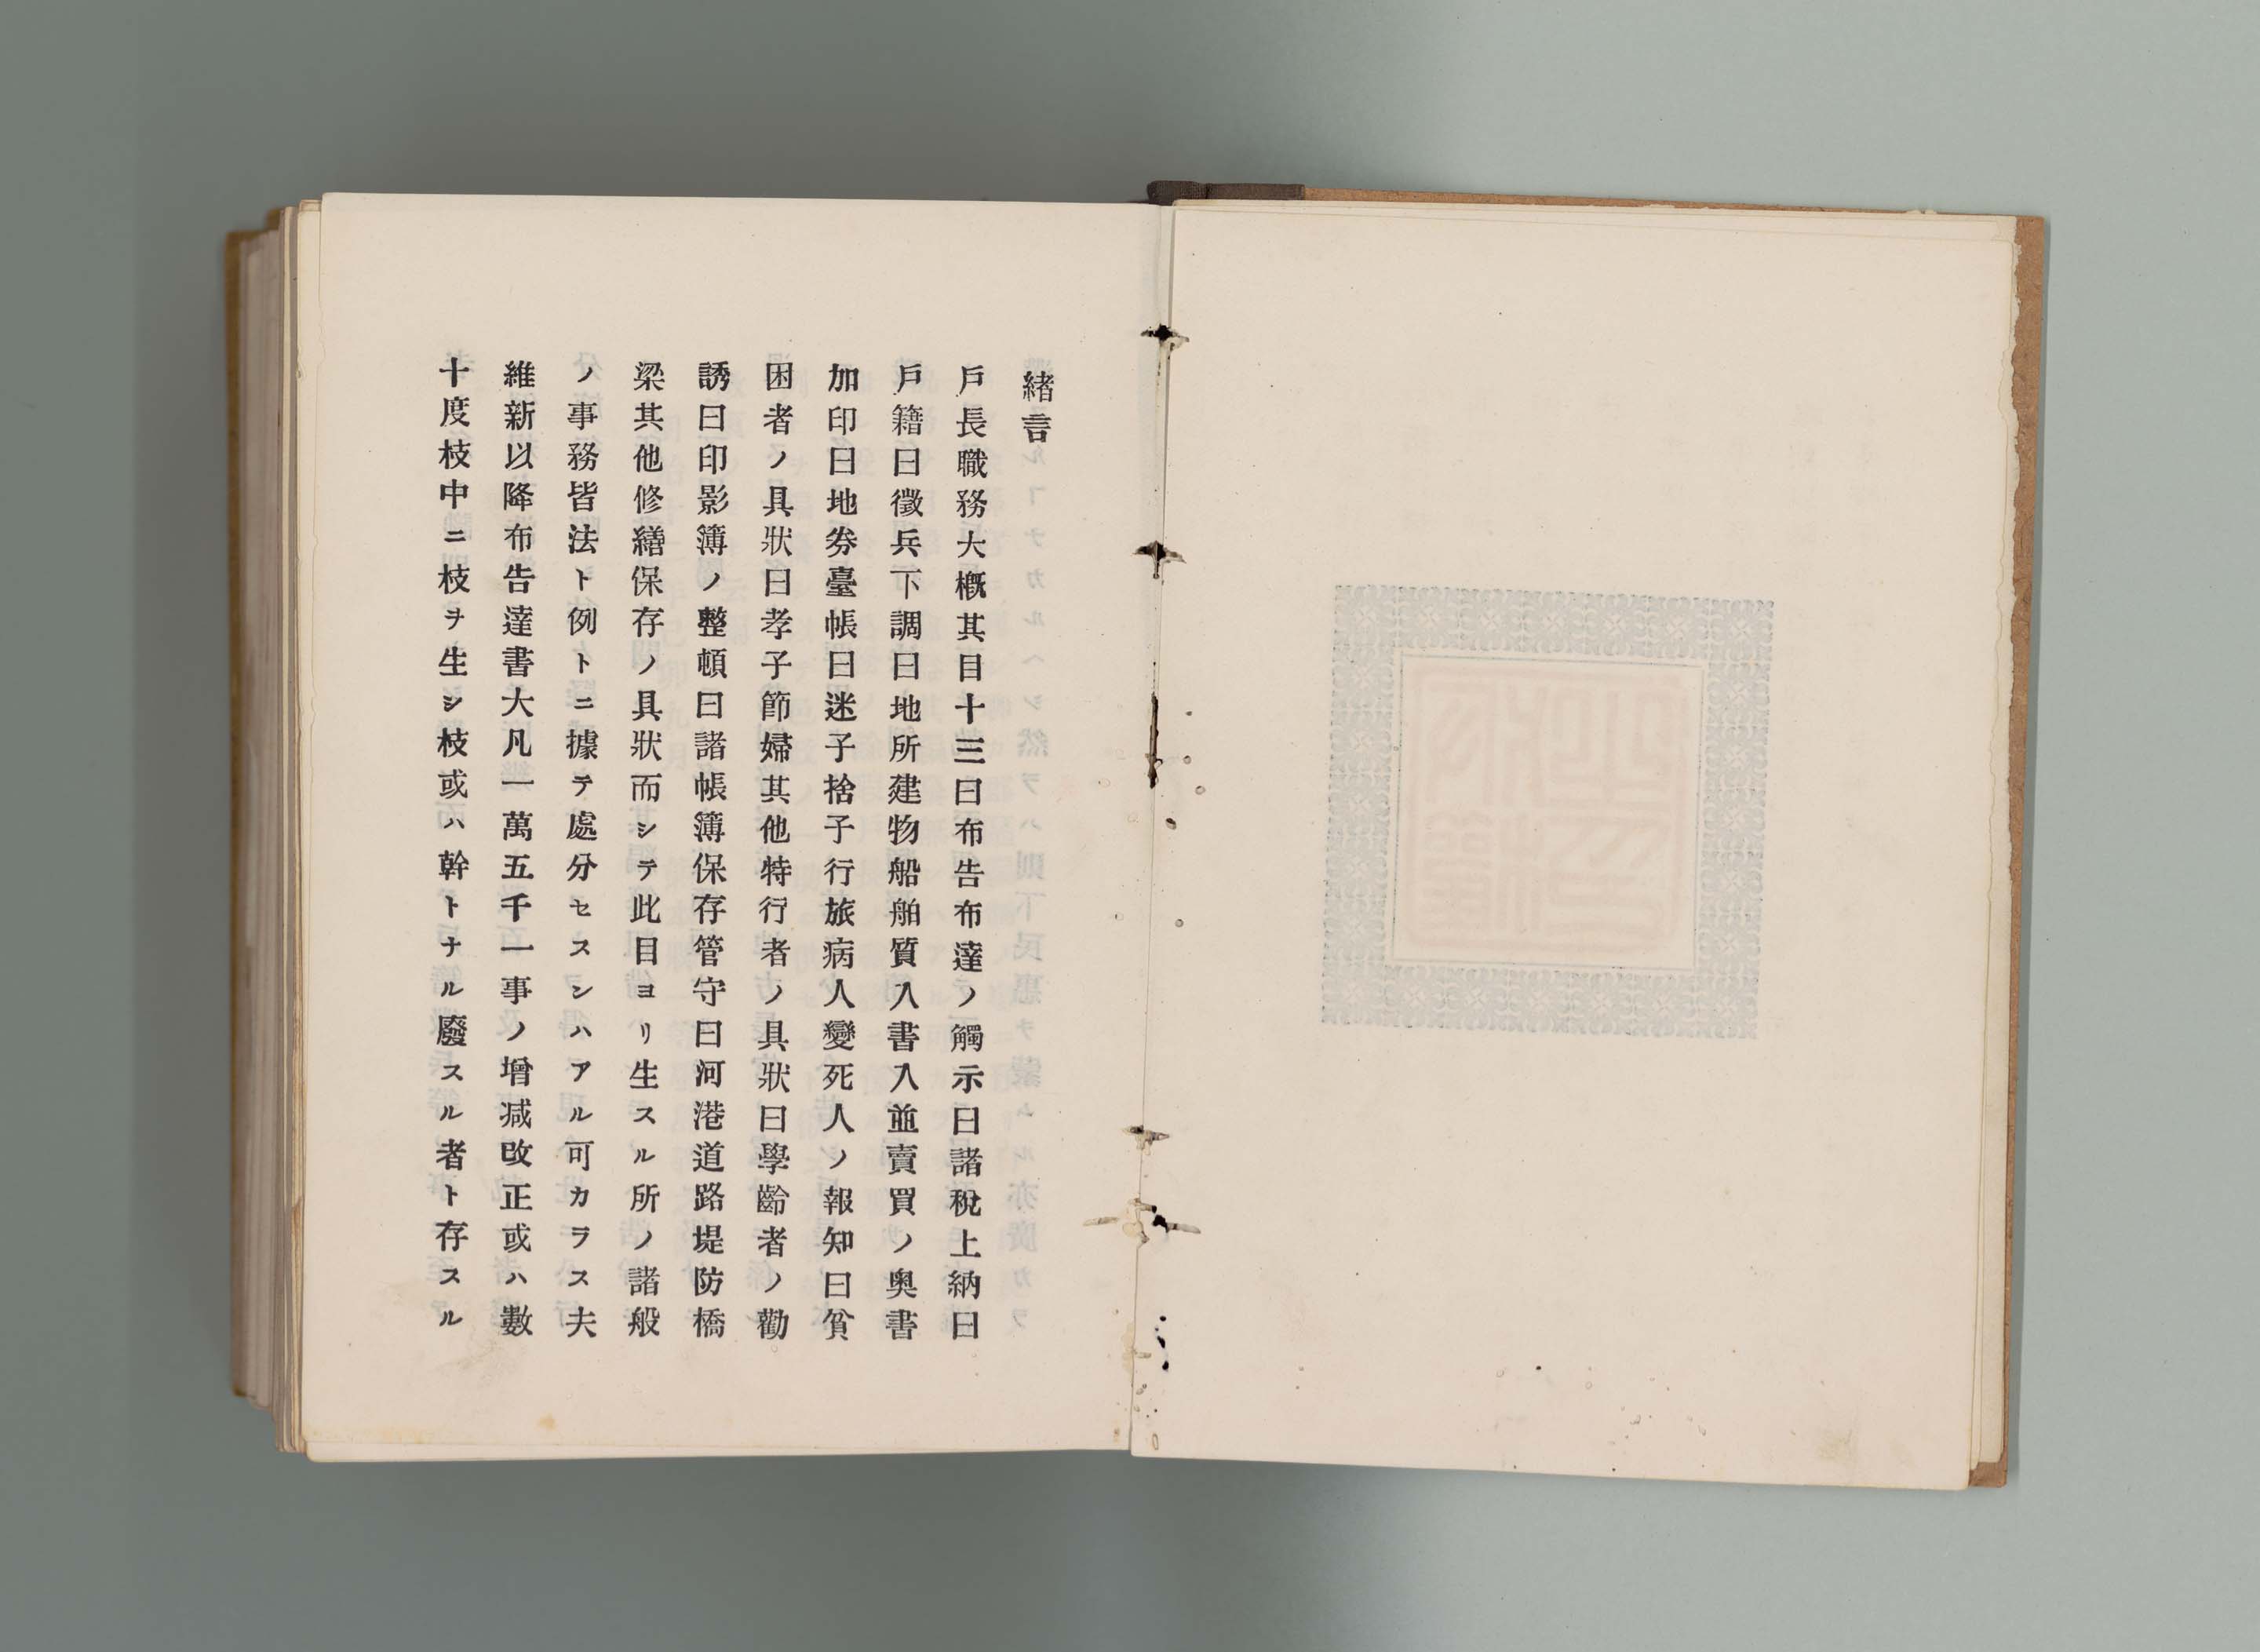 緒言
戶長職務大槪其目十三曰布吿布達ノ觸示曰諸稅上納曰
戶籍曰徵兵下調曰地所建物船舶質入書入並賣買ノ奧書
加印曰地券臺帳曰迷子捨子行旅病人變死人ノ報知曰貧
困者ノ具狀曰孝子節婦其他特行者ノ具狀曰學齡者ノ勸
誘曰印影簿ノ整頓曰諸帳簿保存管守曰河港道路堤防橋
梁其他修繕保存ノ具狀而シテ此目ヨリ生スル所ノ諸般
ノ事務皆法ト例トニ據テ處分セスンハアル可カラス夫
維新以降布吿達書大凡一萬五千一事ノ增減改正或ハ數
十度枝中ニ枝ヲ生シ枝或ハ幹トナル廢スル者ト存スル